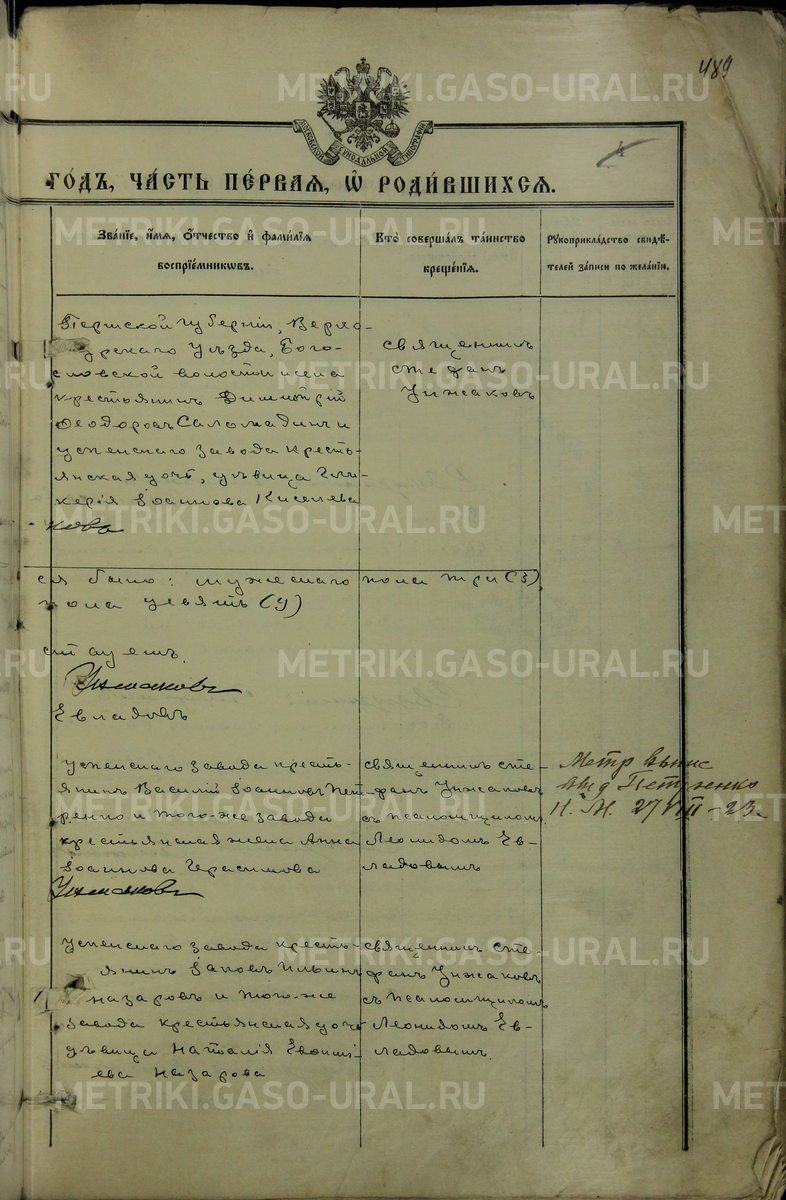 489
МОСКОВСКОЙ СѴНОДАЛЬНОЙ ТИПОГРАФІИ
ГОДЪ, ЧА́СТЬ ПЕ́РВАЯ, Ѡ҆ РОДИ́ВШИХСЯ.
Зва́ніе, и҆́мя, ѻ҆́тчество и҆ фами́лія
воспріе́мниковъ.
Кто̀ соверша́лъ та́инство
креще́нія.
Рꙋкоприкла́дство свидѣ́-
телей за́писи по жела́нію.
Пермской губерніи, Верхо-
турскаго уѣзда, Бого-
словской волости и села
крестьянинъ Димитрій
Ѳеодоровъ Саломадинъ и
Успенскаго завода кресть-
янская дочь, дѣвица Гли-
керія Іоаннова Киселева
Священникъ
Стефанъ
Унжаковъ
ся было: мужескаго пола три (3),
пола девять (9)
Евладовъ
Успенскаго завода кресть-
янинъ Василій Іоанновъ Пет-
ренко и того-же завода
крестьянская жена Анна
Іоаннова Герасимова
Священникъ Сте-
фанъ Унжаковъ
съ псаломщикомъ
Леонидомъ Ев-
ладовымъ
Метр выпис
выд Петренко
27 VIII - 23
Успенскаго завода кресть-
янинъ Іаковъ Ильинъ
Назаровъ и того-же
завода крестьянская дочь
дѣвица Наталія
Назарова
Священникъ Сте-
фанъ Унжаковъ
съ псаломщикомъ
Леонидомъ Ев-
ладовымъ.
METRIKI.GASO-URAL.RU